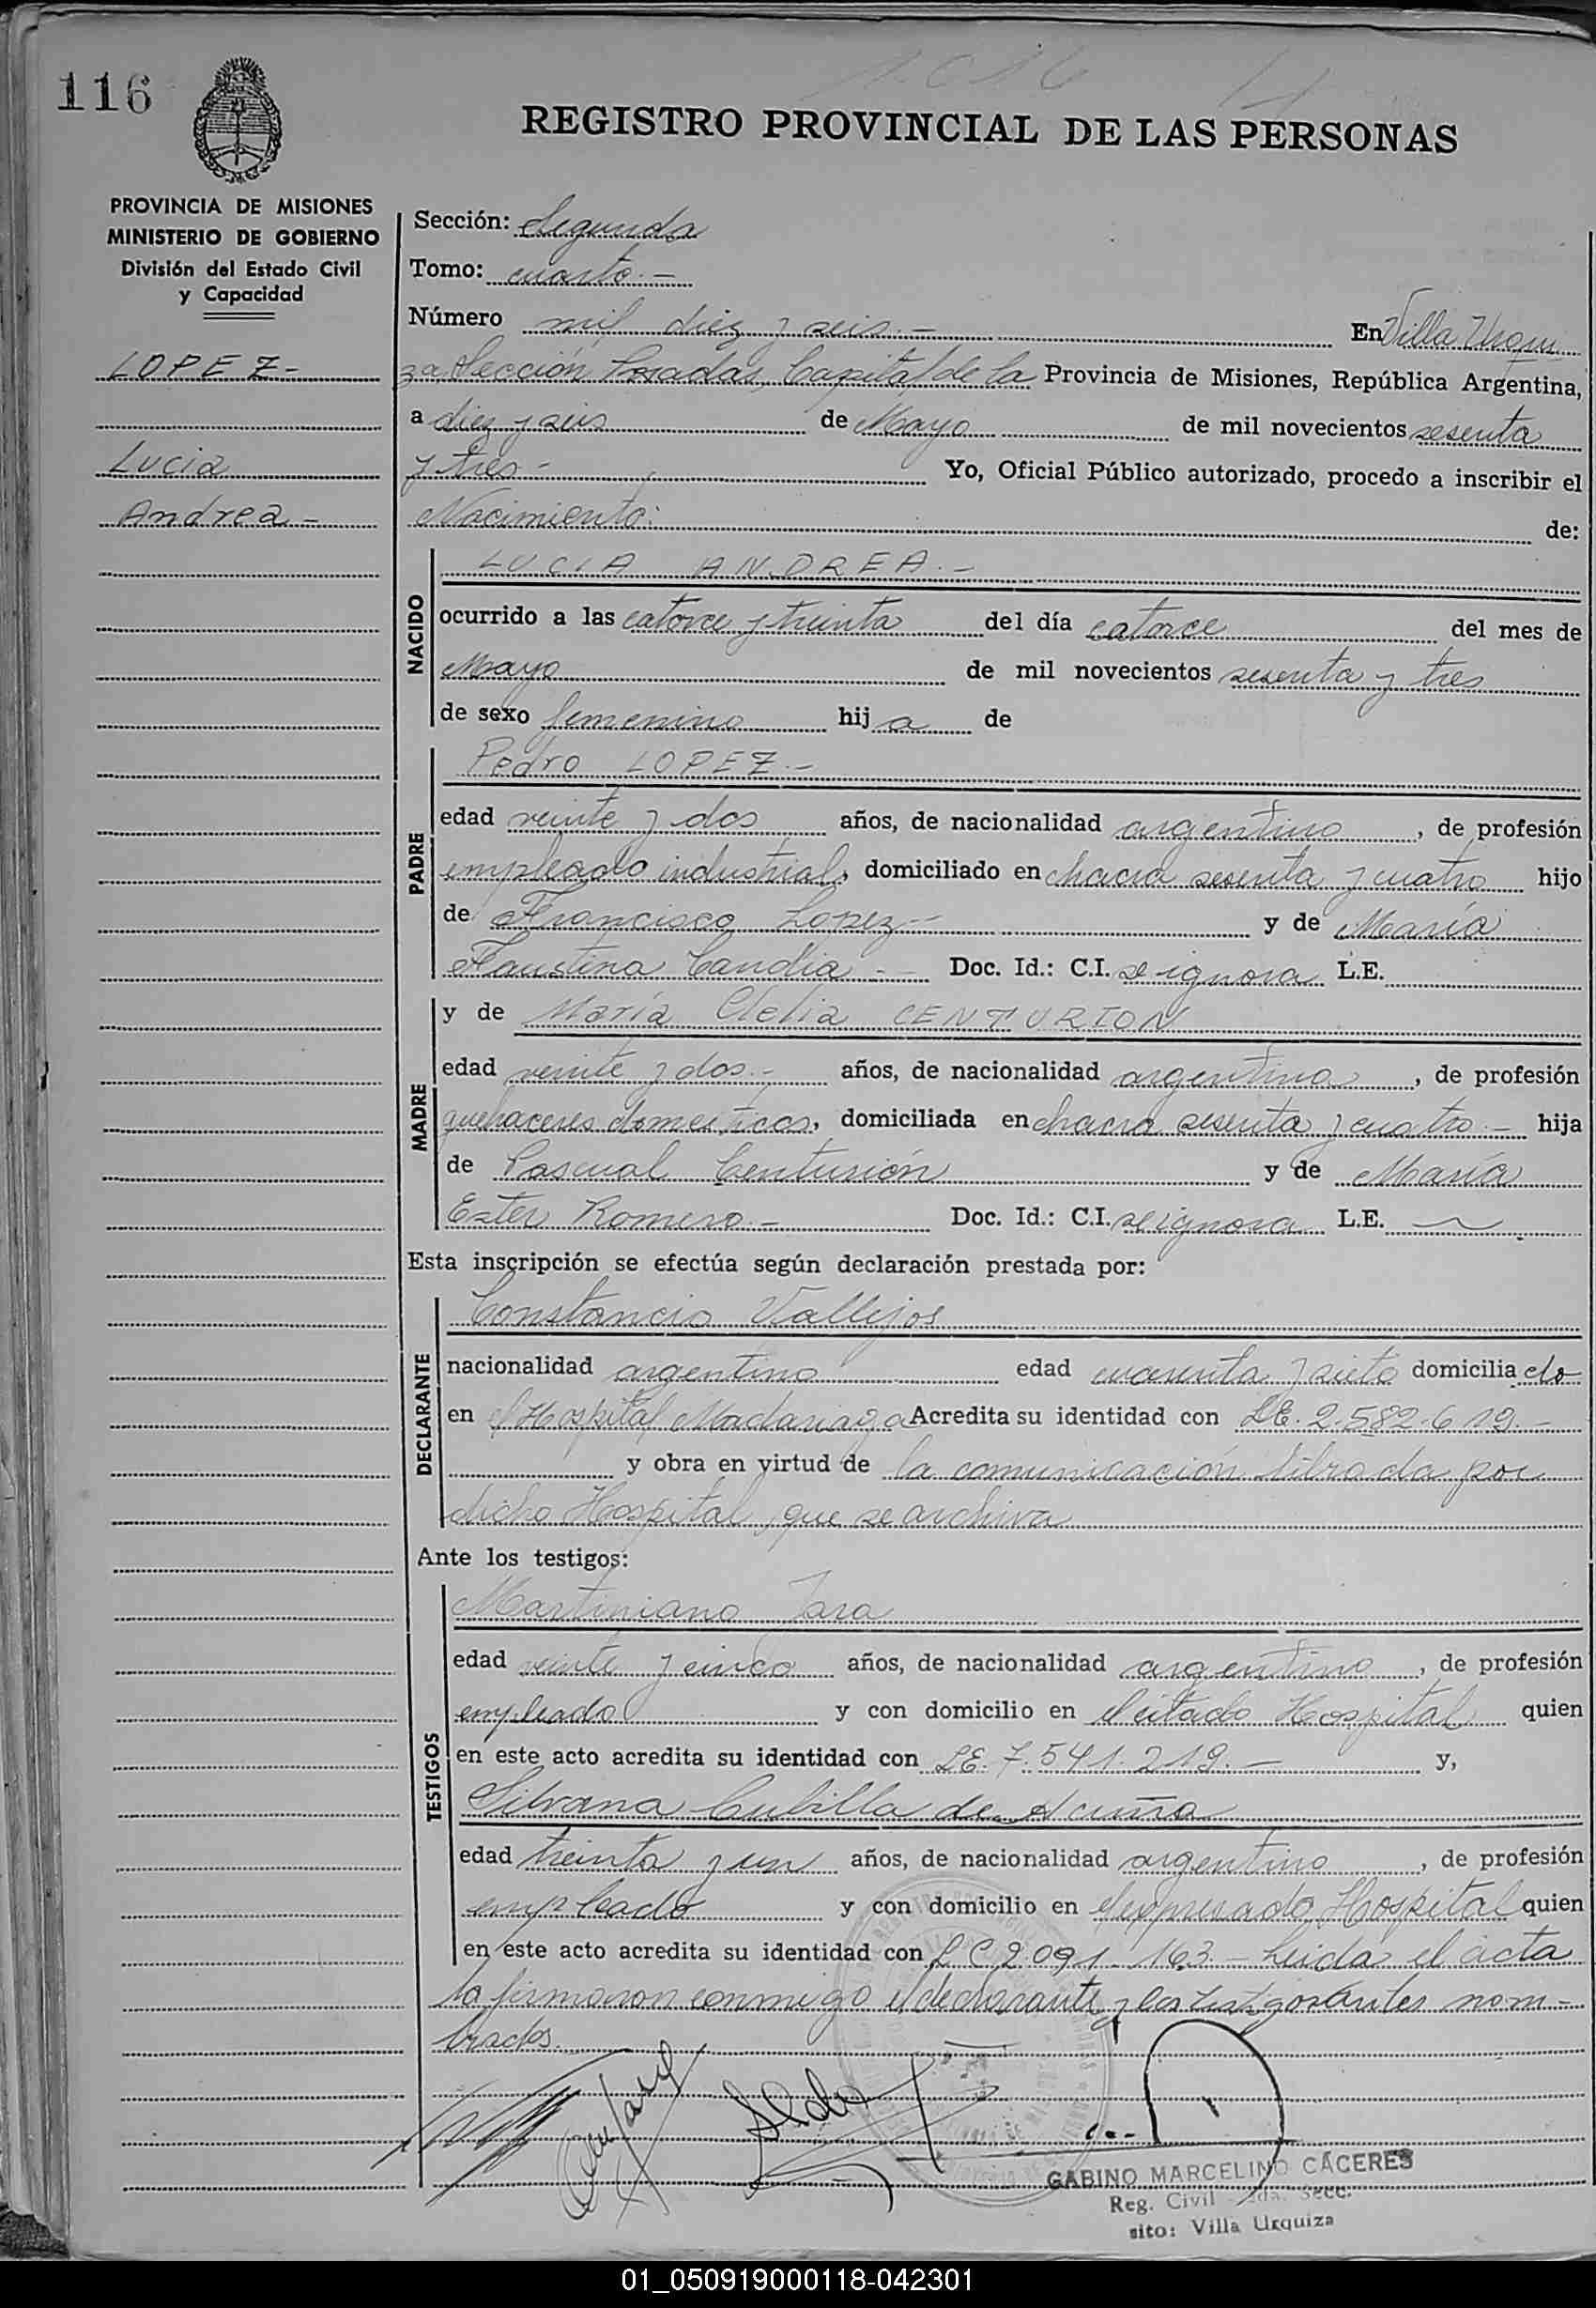 116
REGISTRO PROVINCIAL DE LAS PERSONAS
PROVINCIA DE MISIONES
MINISTERIO DE GOBIERNO
División del Estado Civil
y Capacidad
LOPEZ-
Lucia
Andrea-
Sección: Segunda
Tomo: cuarto.-
Número mil diez y seis.- En Villa Urqui
za, Sección Posadas, Capital de la Provincia de Misiones, República Argentina,
a diez y seis de Mayo de mil novecientos sesenta
y tres- Yo, Oficial Público autorizado, procedo a inscribir el
Nacimiento: de:
NACIDO
LUCIA ANDREA.-
ocurrido a las catorce y treinta del día catorce del mes de
Mayo de mil novecientos sesenta y tres
de sexo femenino hij a de
PADRE
Pedro LOPEZ.-
edad veinte y dos años, de nacionalidad argentino, de profesión
empleado industrial, domiciliado en chacra sesenta y cuatro hijo
de Francisco Lopez- y de María
Faustina Candia- Doc. Id.: C.I. se ignora L.E.
MADRE
y de María Clelia CENTURION
edad veinte y dos.- años, de nacionalidad argentina, de profesión
quehaceres domesticos, domiciliada en chacra sesenta y cuatro.- hija
de Pascual Centurión y de María
Ester Romero.- Doc. Id.: C.I. se ignora L.E.
Esta inscripción se efectúa según declaración prestada por:
DECLARANTE
Constancio Vallejos
nacionalidad argentino edad cuarenta y siete domicilia do
en el Hospital Madariaga Acredita su identidad con LE. 2.582.619.-
y obra en virtud de la comunicación librada por
dicho Hospital, que se archiva
Ante los testigos:
TESTIGOS
Martiniano Jara
edad veinte y cinco años, de nacionalidad argentino, de profesión
empleado y con domicilio en el citado Hospital quien
en este acto acredita su identidad con LE. 7.541.219.- y,
Silvana Cubilla de Acuña
edad treinta y un años, de nacionalidad argentino, de profesión
empleado y con domicilio en el expresado Hospital quien
en este acto acredita su identidad con L C 2.091.163.- Leida el acta
la firmaron conmigo el declarante y los testigos antes nom-
brados.
GABINO MARCELINO CACERES
Reg. Civil 2da. Secc.
sito: Villa Urquiza
01_050919000118-042301